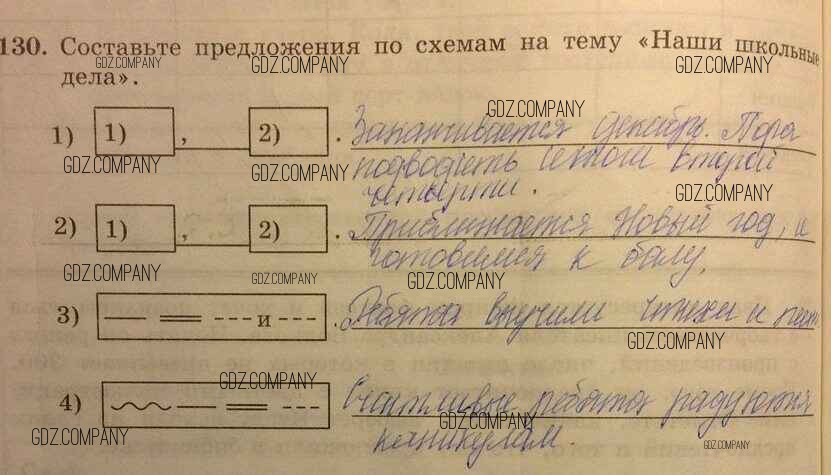 130. Составьте предложения по схемам на тему «Наши школьные
GDZ.COMPANY GDZ.COMPANY GDZ.COMPANY
дела».
GDZ.COMPANY
1) 1) , 2) . Заканчивается декабрь. Пора
GDZ.COMPANY GDZ.COMPANY
подводить итоги второй
четверти.
GDZ.COMPANY
2) 1) , 2) . Приближается Новый год, и
готовимся к балу.
GDZ.COMPANY GDZ.COMPANY GDZ.COMPANY
3) и . Ребята выучили стихи и
GDZ.COMPANY
GDZ.COMPANY
4) Счастливые ребята радуются
GDZ.COMPANY GDZ.COMPANY GDZ.COMPANY
каникулам.